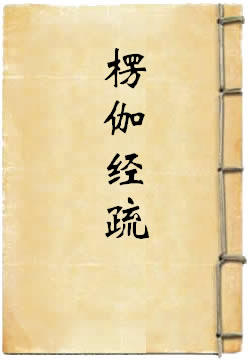 楞伽经疏